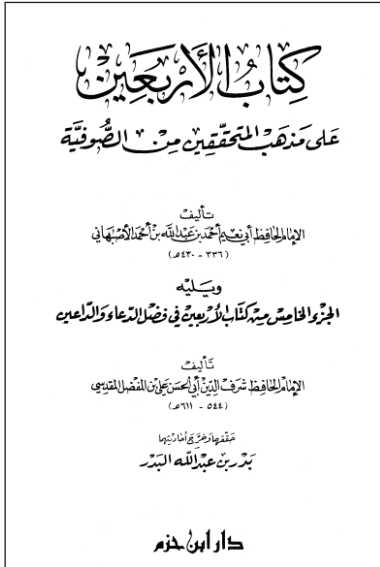 كِتَابُ الأَرْبَعِيْنَ
عَلَى مَذْهَبِ المُتَحَقِّقِينَ مِنَ الصُّوفِيَّة
تأليف
الإمام الحافظ أبي نعيم أحمد بن عبد الله بن أحمد الأصبهاني
(٣٣٦ - ٤٣٠هـ)
ويليه
الجزء الخامس من كتاب الأربعين في فضل الدعاء والداعين
تأليف
الإمام الحافظ شرف الدين أبي الحسن علي بن المفضل المقدسي
(٥٤٤ - ٦١١هـ)
حققهما وخرج أحاديثهما
بدر بن عبد الله البدر
دار ابن حزم